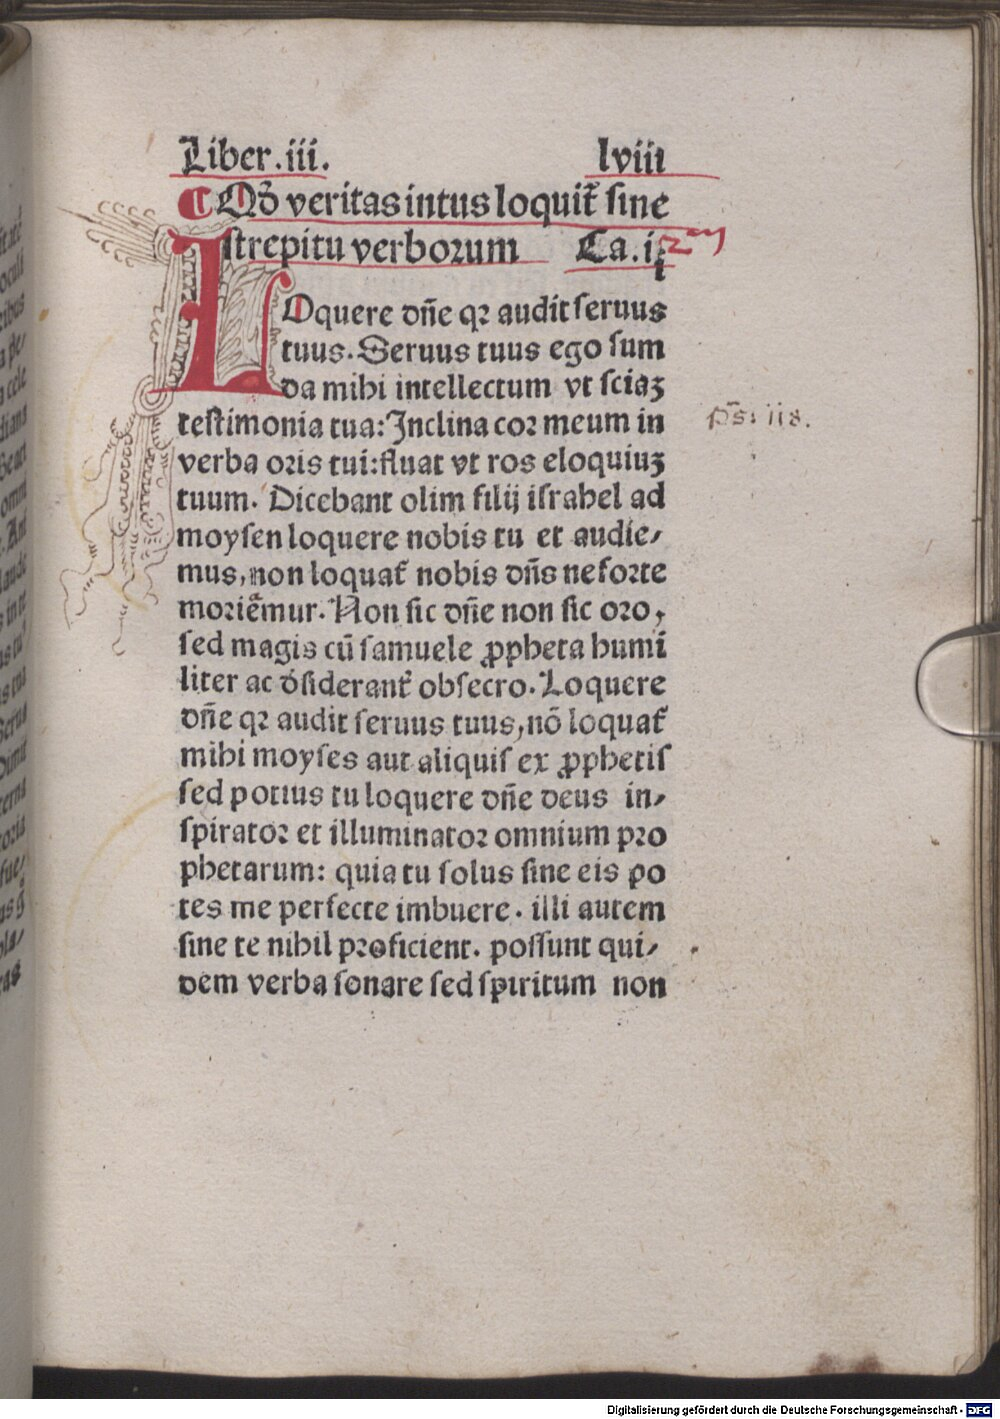 Liber.iii. lviii
¶ Qđ veritas intus loquit̄ sine
strepitu verborum Ca.i.
LOquere dn̄e qꝛ audit seruus
tuus. Seruus tuus ego sum
da mihi intellectum vt sciaꝫ
testimonia tua: Inclina cor meum in
verba oris tui: fluat vt ros eloquiuꝫ
tuum. Dicebant olim filij israhel ad
moysen loquere nobis tu et audie/
mus, non loquat̄ nobis dn̄s ne forte
moriēmur. Non sic dn̄e non sic oro,
sed magis cū samuele ꝓpheta humī
liter ac d̄siderant̄ obsecro. Loquere
dn̄e qꝛ audit seruus tuus, nō loquat̄
mihi moyses aut aliquis ex ꝓphetis
sed potius tu loquere dn̄e deus in/
spirator et illuminator omnium pro
phetarum: quia tu solus sine eis po
tes me perfecte imbuere. illi autem
sine te nihil proficient. possunt qui/
dem verba sonare sed spiritum non
ps: 118.
Digitalisierung gefördert durch die Deutsche Forschungsgemeinschaft - DFG